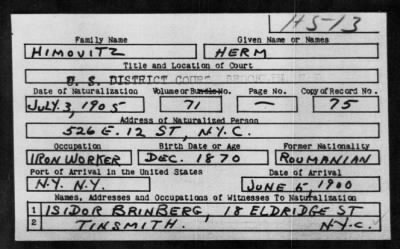 H5-13
Family Name Given Name or Names
HIMOVITZ HERM
Title and Location of Court
U. S. DISTRICT COURT, BROOKLYN
Date of Naturalization Volume or Bundle No. Page No. Copy of Record No.
JULY. 3, 1905 71 — 75
Address of Naturalized Person
526 E. 12 ST, N.Y.C.
Occupation Birth Date or Age Former Nationality
IRON WORKER DEC. 1870 ROUMANIAN
Port of Arrival in the United States Date of Arrival
N.Y. N.Y. JUNE 5, 1900
Names, Addresses and Occupations of Witnesses To Naturalization
1 ISIDOR BRINBERG, 18 ELDRIDGE ST
2 TINSMITH. N.Y.C.